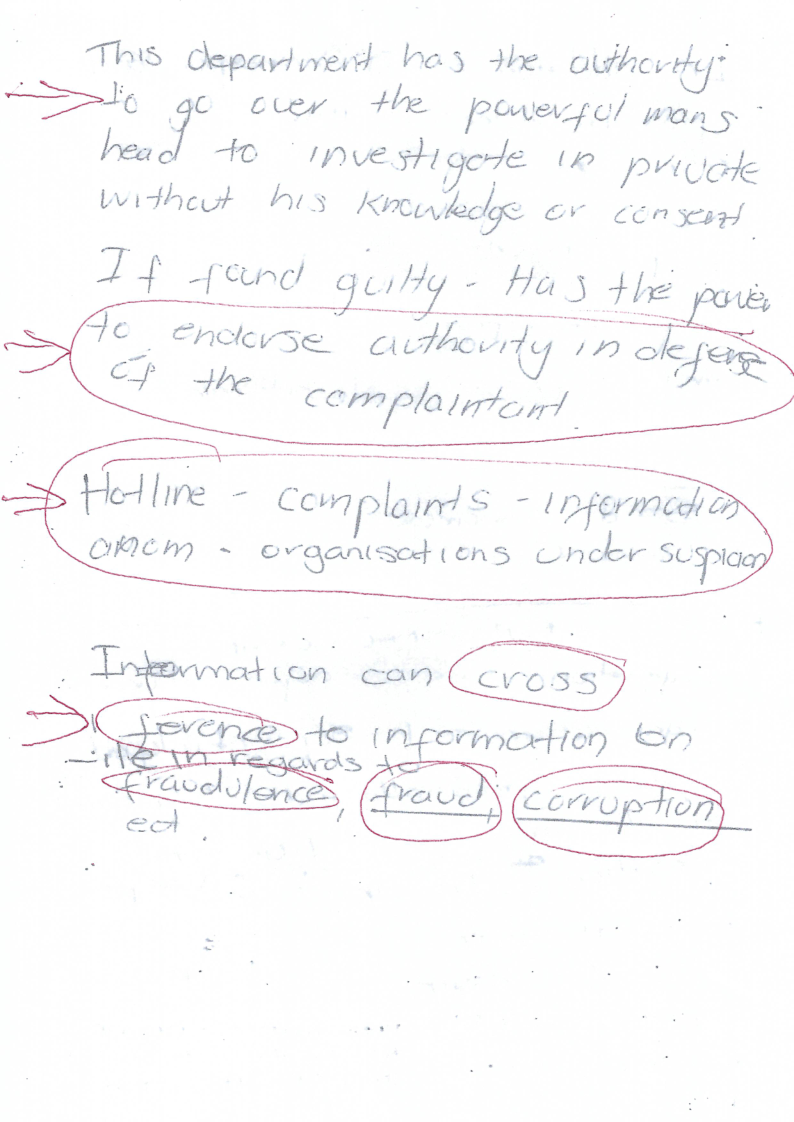 This department has the authority
to go over the powerful mans
head to investigate in private
without his knowledge or consent
If found guilty - Has the power
to endorse authority in defense
of the complaintant.
Hotline - complaints - information
anom - organisations under suspicion
Information can cross
ference to information on
file in regards to
fraudulence, fraud, corruption
ect.